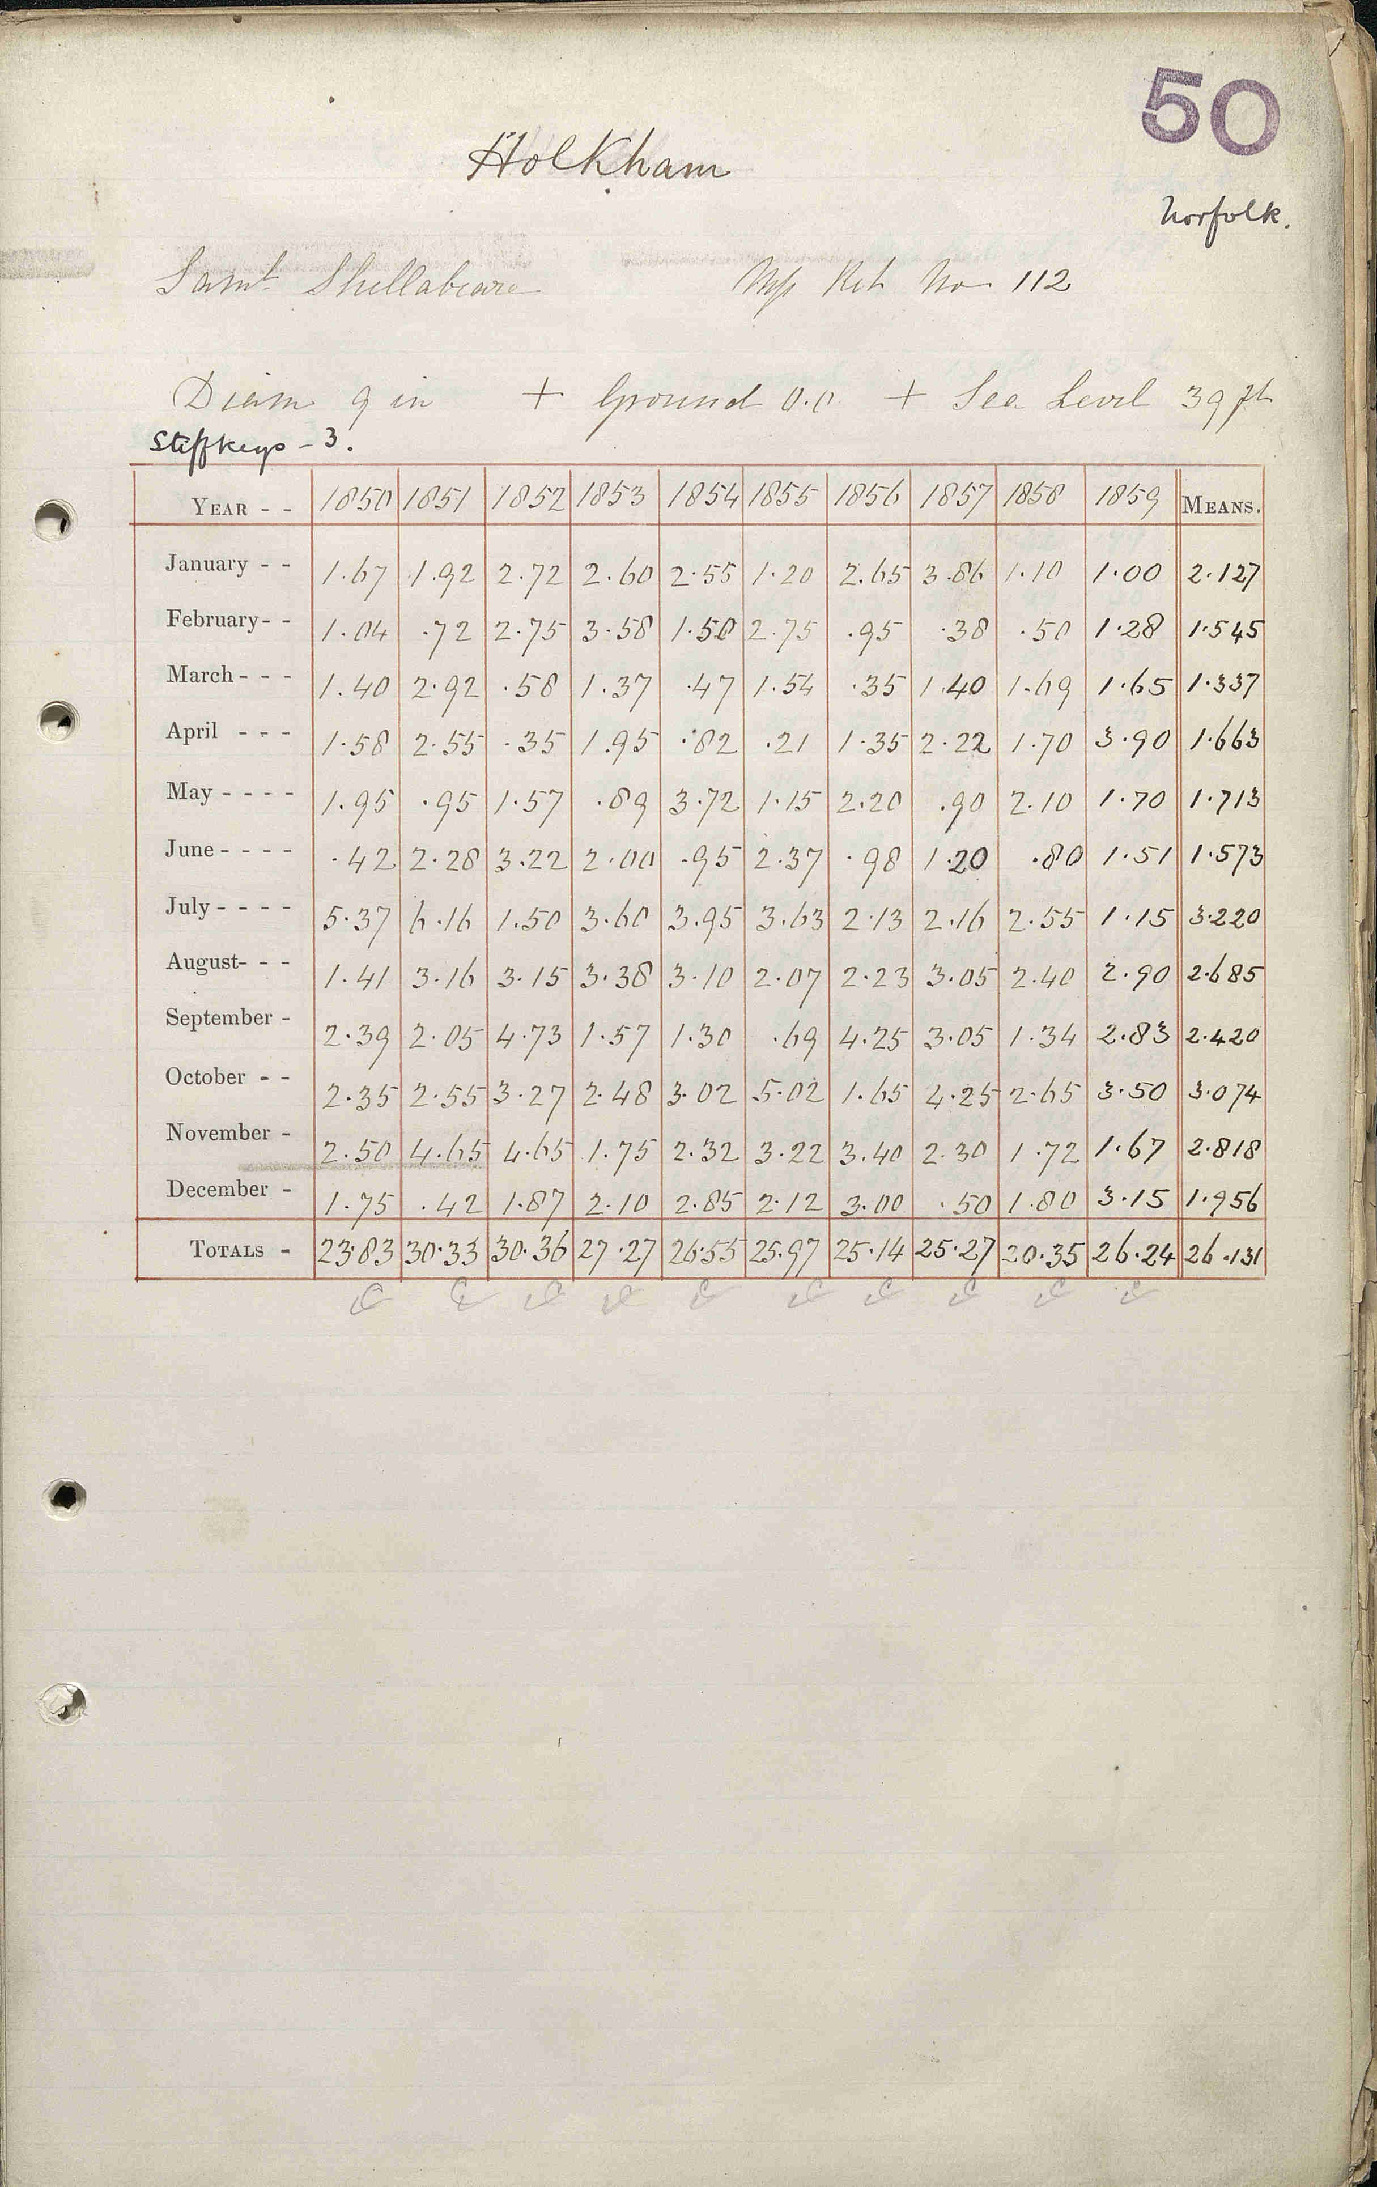 50
Holkham
Norfolk.
Saml Shellabeare Mp Ret No 112
Diam 9 in + Ground 0.0 + Sea Level 39 ft
Stiffkeys - 3.
YEAR - - 1850 1851 1852 1853 1854 1855 1856 1857 1858 1859 MEANS.
January - - 1.67 1.92 2.72 2.60 2.55 1.20 2.65 3.86 1.10 1.00 2.127
February - - 1.04 .72 2.75 3.58 1.50 2.75 .95 .38 .50 1.28 1.545
March - - - 1.40 2.92 .58 1.37 .47 1.54 .35 1.40 1.69 1.65 1.337
April - - - 1.58 2.55 .35 1.95 .82 .21 1.35 2.22 1.70 3.90 1.663
May - - - - 1.95 .95 1.57 .89 3.72 1.15 2.20 .90 2.10 1.70 1.713
June - - - - .42 2.28 3.22 2.00 .95 2.37 .98 1.20 .80 1.51 1.573
July - - - - 5.37 6.16 1.50 3.60 3.95 3.63 2.13 2.16 2.55 1.15 3.220
August - - - 1.41 3.16 3.15 3.38 3.10 2.07 2.23 3.05 2.40 2.90 2.685
September - 2.39 2.05 4.73 1.57 1.30 .69 4.25 3.05 1.34 2.83 2.420
October - - 2.35 2.55 3.27 2.48 3.02 5.02 1.65 4.25 2.65 3.50 3.074
November - 2.50 4.65 4.65 1.75 2.32 3.22 3.40 2.30 1.72 1.67 2.818
December - 1.75 .42 1.87 2.10 2.85 2.12 3.00 .50 1.80 3.15 1.956
TOTALS - 23.83 30.33 30.36 27.27 26.55 25.97 25.14 25.27 20.35 26.24 26.131